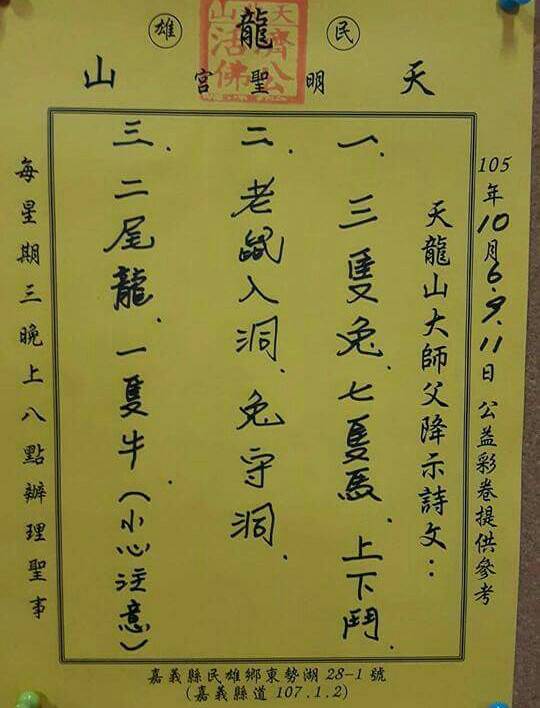 民 龍 雄
天 明聖宮 山
濟公
活佛
105年10月6.9.11日 公益彩卷提供參考
天龍山大師父降示詩文：
一、三隻兔、七隻馬、上下鬥、
二、老鼠入洞、兔守洞、
三、二尾龍、一隻牛(小心注意)
每星期三晚上八點辦理聖事
嘉義縣民雄鄉東勢湖28-1號
(嘉義縣道107.1.2)